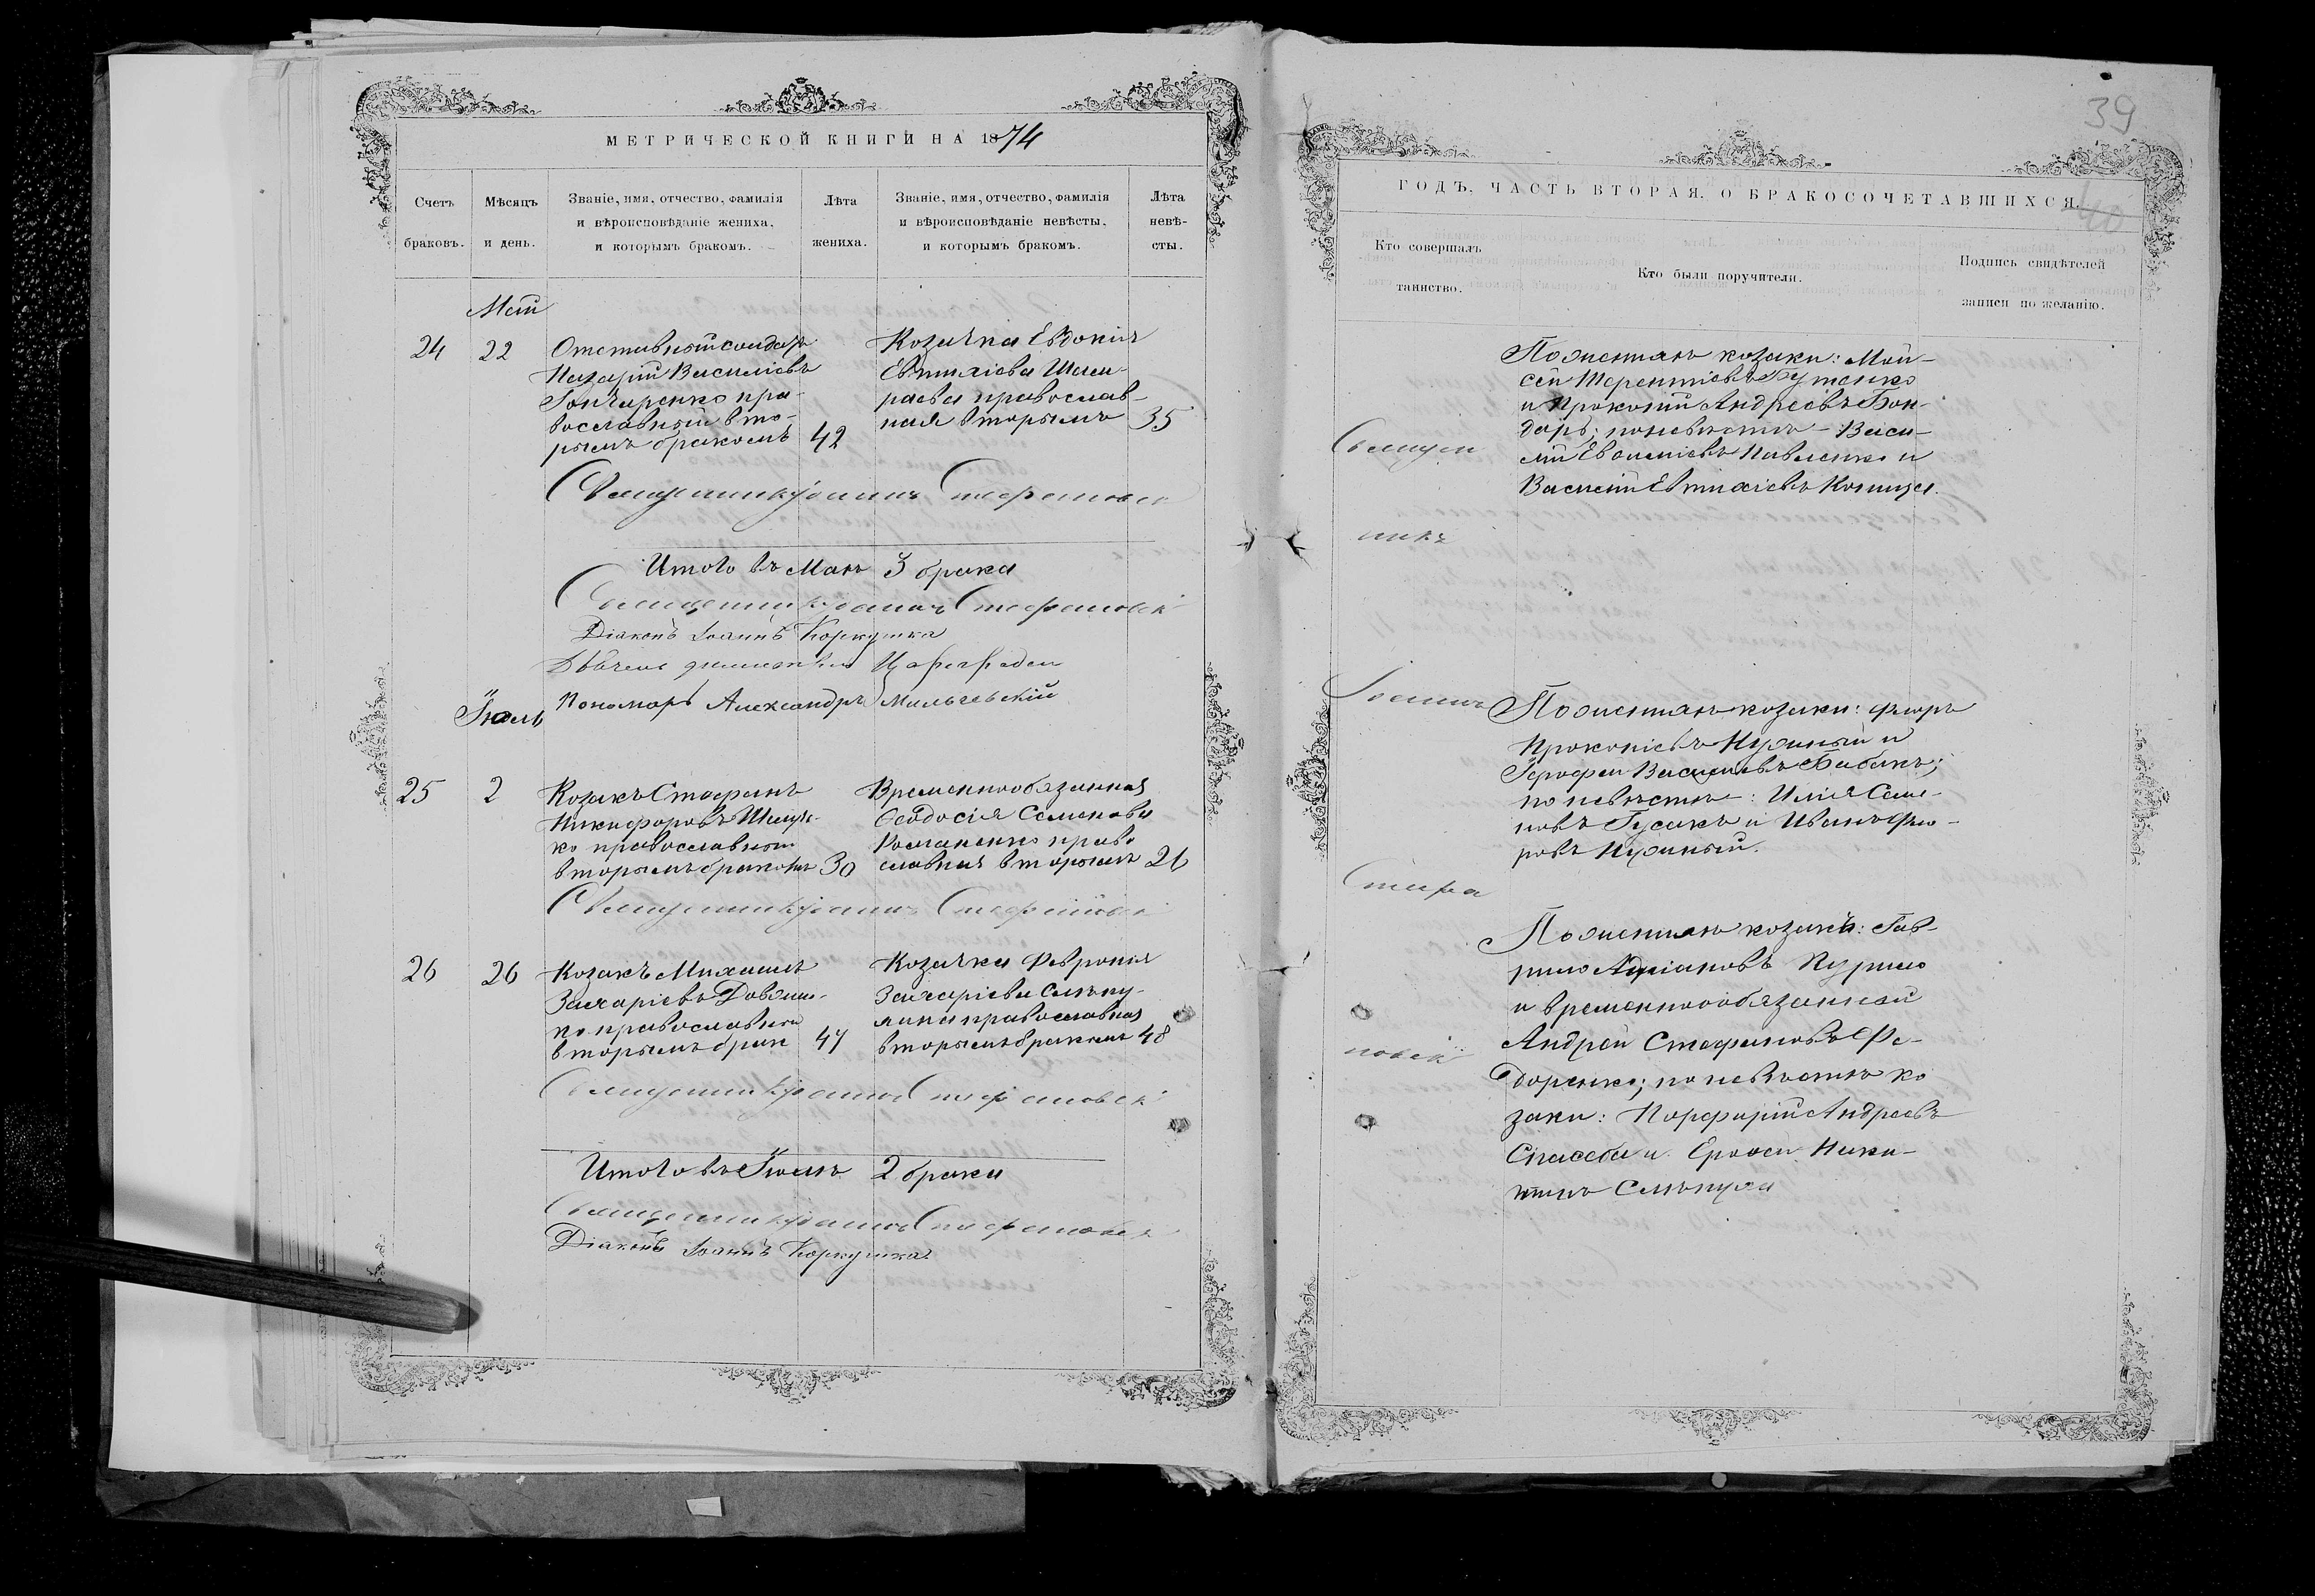 МЕТРИЧЕСКОЙ КНИГИ НА 1874
Счетъ браковъ.
Мѣсяцъ и день.
Званіе, имя, отчество, фамилія
и вѣроисповѣданіе жениха,
и которымъ бракомъ.
Лѣта
жениха.
Званіе, имя, отчество, фамилія
и вѣроисповѣданіе невѣсты,
и которымъ бракомъ.
Лѣта
невѣ-
сты.
Май
24
22
Отставный солдатъ
Назарій Василіевъ
Гончаренко пра-
вославный вто-
рымъ бракомъ
42
Козачка Евдокія
Евтихіева
православ-
ная вторымъ
35
Священникъ Іоаннъ Стефановскій
Итого въ Маѣ 3 брака
Священникъ Іоаннъ Стефановскій
Діаконъ Іоаннъ Коркушка
Пономарь Александръ Мильчевскій
Іюль
25
2
Козакъ Стефанъ
Никифоровъ
ко православный
вторымъ бракомъ
30
Временнообязанная
Ѳеодосія Семенова
Романенко право
славная вторымъ
26
Священникъ Іоаннъ Стефановскій
26
26
Козакъ Михаилъ
Захаріевъ Довжен-
ко православный
вторымъ брак
47
Козачка Февронія
Захаріева Слѣпу-
православная
вторымъ бракомъ
48
Священникъ Іоаннъ Стефановскій
Итого въ Іюлѣ 2 брака
Священникъ Іоаннъ Стефановскій
Діаконъ Іоаннъ Коркушка
39
40
ГОДЪ, ЧАСТЬ ВТОРАЯ, О БРАКОСОЧЕТАВШИХСЯ.
Кто совершалъ
таинство.
Кто были поручители.
Подпись свидѣтелей
записи по желанію.
Священ
никъ
Іоаннъ
Стефа
новскій
По женихѣ козаки: Мои-
сей Терентіевъ Бутенко
и Прокопій Андреевъ Бон-
дарь; по невѣстѣ – Васи-
лій Павленко и
Василій Евтихіевъ
По женихѣ козаки: Флоръ
Прокопіевъ и
Іерофей Василіевъ Бабакъ;
по невѣстѣ: Илія Семе-
новъ Гусакъ и Иванъ Фло-
ровъ
По женихѣ козакъ: Гав-
рило Адріановъ Курило
и временнообязанный
Андрей Стефановъ Фе-
доренко; по невѣстѣ ко
заки: Порфирій Андреевъ
и Ерофей Ники-
тинъ Слѣпуха